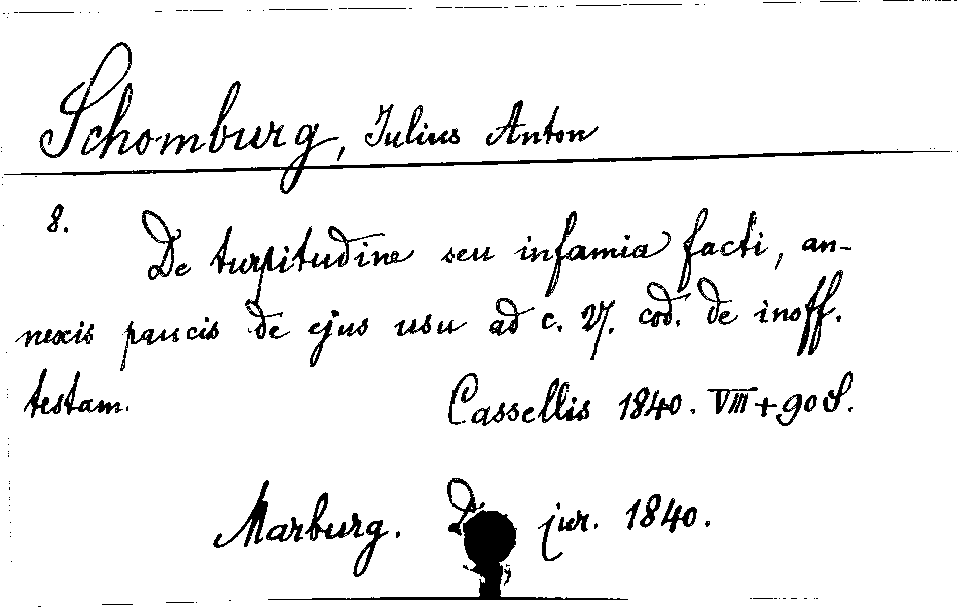 Schomburg, Julius Anton
8. De turpitudine seu infamia facti, an-
nexis paucis de ejus usu ad c. 27. cod. de inoff.
testam. Cassellis 1840. VIII+90 S.
Marburg. jur. 1840.